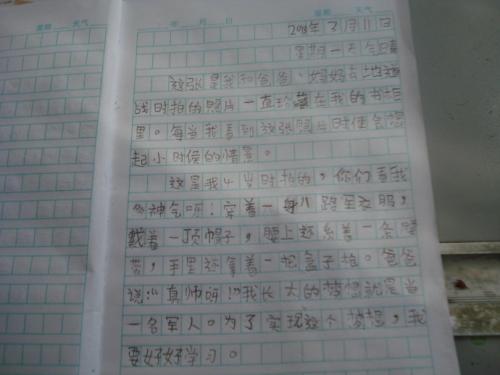 星期 天气
年 月 日
星期 天气
2013年3月11日
星期一 天气晴
这张是我和爸爸、妈妈去地道
战时拍的照片一直珍藏在我的书柜
里。每当我看到这张照片时便会想
起小时候的情景。
这是我4岁时拍的，你们看我
多神气呀！穿着一身八路军衣服，
戴着一顶帽子，腰上还系着一条腰
带，手里还拿着一把盒子枪。爸爸
说："真帅呀！"我长大的梦想就是当
一名军人。为了实现这个梦想，我
要好好学习。